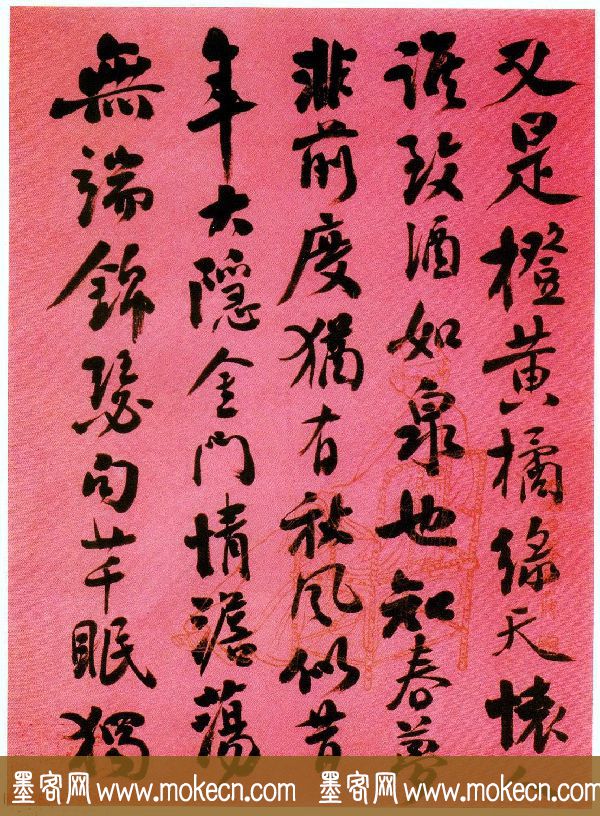 又是橙黄橘綠天懷
誰致酒如泉也知春夢
非前度猶有秋風似昔
年大隱金門情澹蕩
無端錦瑟句芊眠獨
墨客网 www.mokecn.com 墨客网 www.mokecn.com